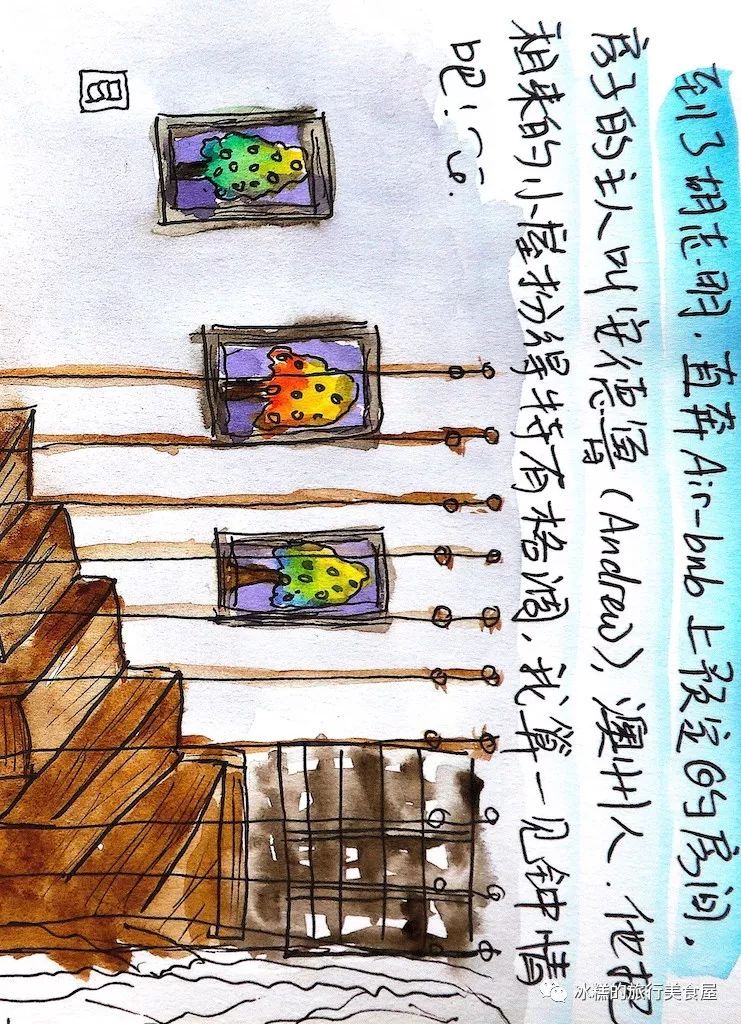 到了胡志明.直奔Air-bnb上预定的房间.
房子的主人叫安德鲁(Andrew),澳州人.他把
租来的小屋扮得特有格调,我算一见钟情
吧!
冰糕的旅行美食屋